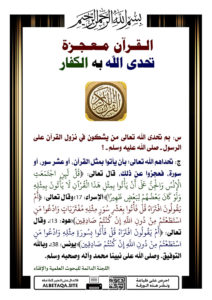 بسم الله الرحمن الرحيم
القرآن معجزة
تحدى الله به الكفار
س: بم تحدى الله تعالى من يشكون في نزول القرآن على
الرسول ـ صلى الله عليه وسلم ـ ؟
ج: تحداهم الله تعالى: بأن يأتوا بمثل القرآن، أو عشر سور، أو
سورة، فعجزوا عن ذلك، قال تعالى: {قُل لَّئِنِ اجْتَمَعَتِ
الْإِنسُ وَالْجِنُّ عَلَىٰ أَن يَأْتُوا بِمِثْلِ هَٰذَا الْقُرْآنِ لَا يَأْتُونَ بِمِثْلِهِ
وَلَوْ كَانَ بَعْضُهُمْ لِبَعْضٍ ظَهِيرًا}[الإسراء: 17]وقال تعالى: {أَمْ
يَقُولُونَ افْتَرَاهُ قُلْ فَأْتُوا بِعَشْرِ سُوَرٍ مِّثْلِهِ مُفْتَرَيَاتٍ وَادْعُوا مَنِ
اسْتَطَعْتُم مِّن دُونِ اللَّهِ إِن كُنتُمْ صَادِقِينَ}[هود: 13]، وقال
تعالى: {أَمْ يَقُولُونَ افْتَرَاهُ قُلْ فَأْتُوا بِسُورَةٍ مِّثْلِهِ وَادْعُوا مَنِ
اسْتَطَعْتُم مِّن دُونِ اللَّهِ إِن كُنتُمْ صَادِقِينَ}[يونس: 38] وبالله
التوفيق وصلى الله على نبينا محمد وآله وصحبه وسلم.
اللجنة الدائمة للبحوث العلمية والإفتاء
ALBETAQA.SITE